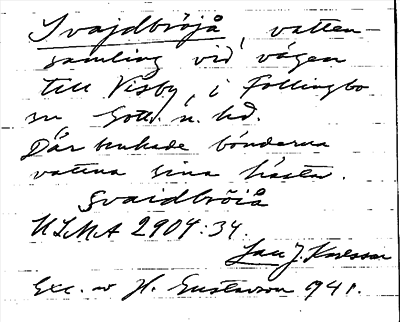 Svajdbröjå, vatten-
samling vid vägen
till Visby, i Follingbo
sn Gotl. n. hd.
Där brukade bönderna
vattna sina hästar.
svaidbröiå
ULMA 2904:34.
J. Karlsson
Exc. av H. Gustavson 1941.